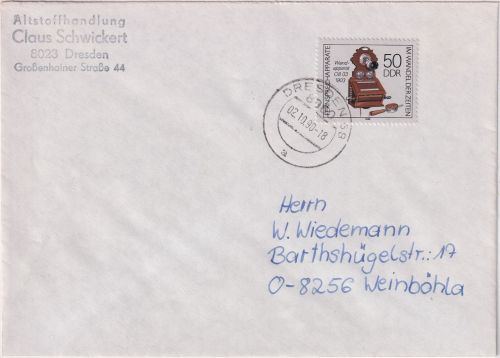 Altstoffhandlung
Claus Schwickert
8023 Dresden
Großenhainer Straße 44
FERNSPRECHAPPARATE
Wand-
apparat
OB 03
1903
50
DDR
IM WANDEL DER ZEITEN
DRESDEN 68
02.10.90-18
a
Herrn
W. Wiedemann
Barthshügelstr.: 17
O-8256 Weinböhla